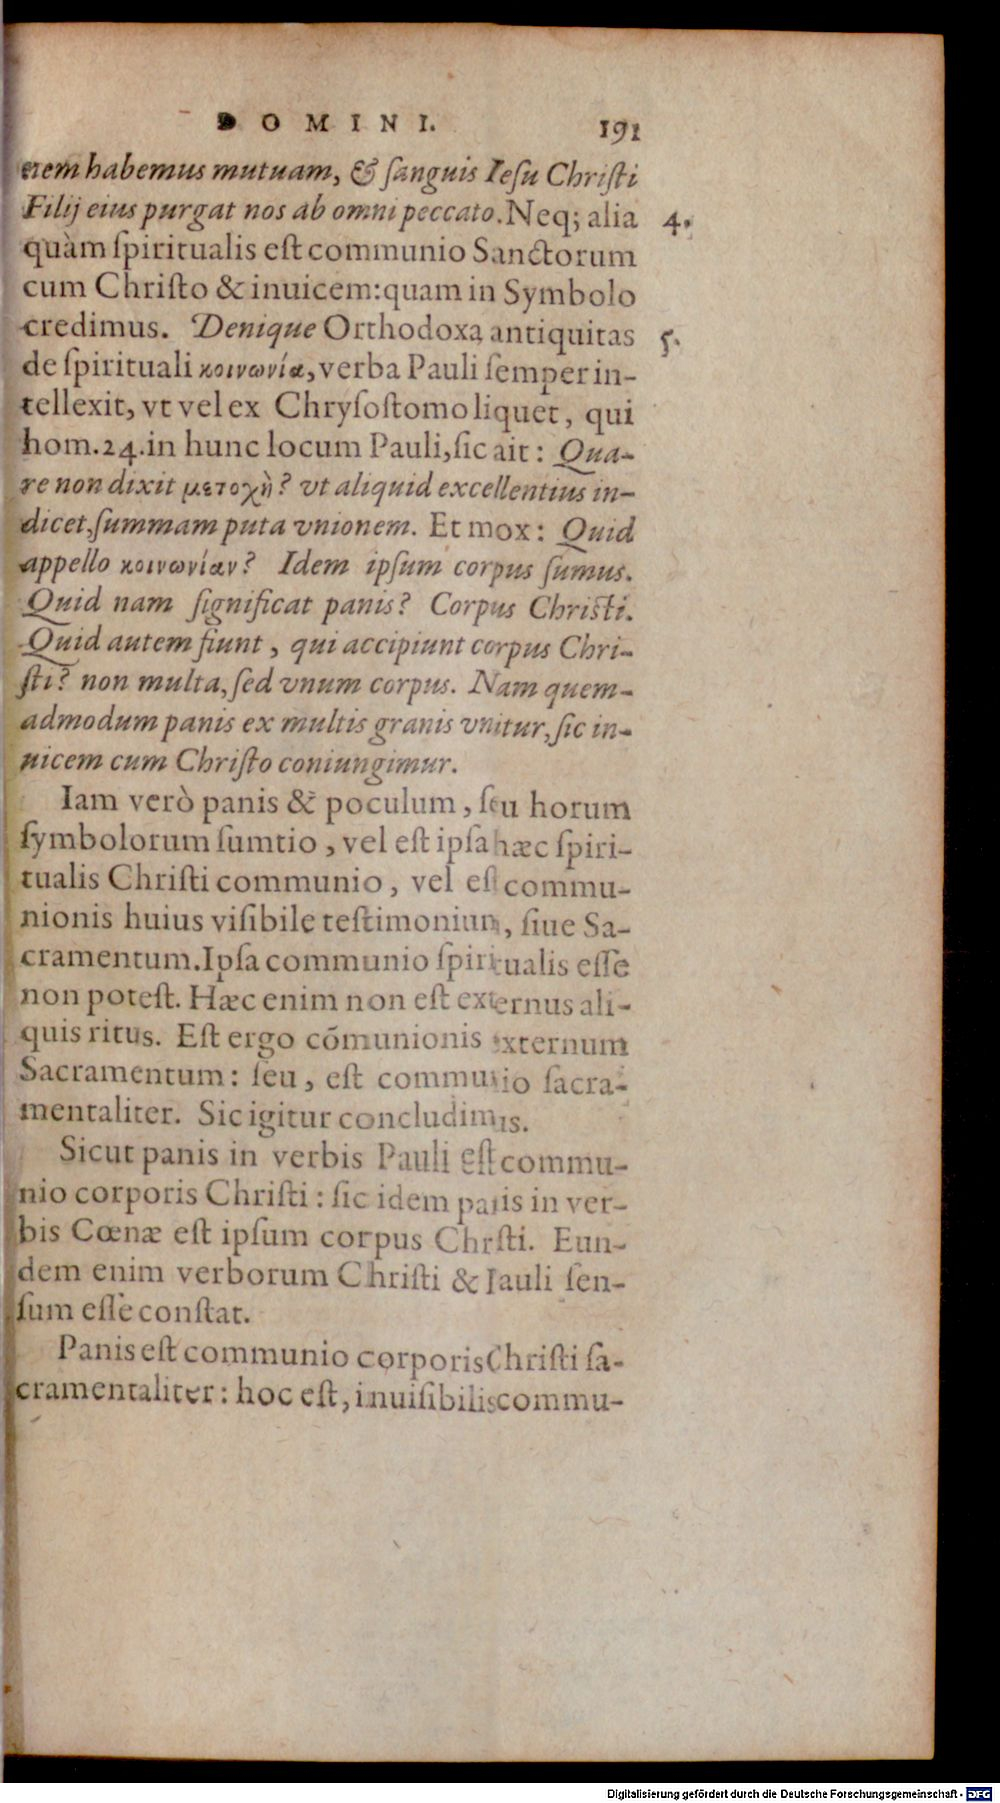 DOMINI. 191
nem habemus mutuam, & ſanguis Ieſu Chriſti
Filij eius purgat nos ab omni peccato. Neq; alia 4.
quàm ſpiritualis eſt communio Sanctorum
cum Chriſto & inuicem: quam in Symbolo
credimus. Denique Orthodoxa antiquitas 5.
de ſpirituali κοινωνία, verba Pauli ſemper in-
tellexit, vt vel ex Chryſoſtomo liquet, qui
hom. 24. in hunc locum Pauli, ſic ait: Qua-
re non dixit μετοχὴ? vt aliquid excellentius in-
dicet, ſummam puta vnionem. Et mox: Quid
appello κοινωνίαν? Idem ipſum corpus ſumus.
Quid nam ſignificat panis? Corpus Chriſti.
Quid autem fiunt, qui accipiunt corpus Chri-
ſti? non multa, ſed vnum corpus. Nam quem-
admodum panis ex multis granis vnitur, ſic in-
uicem cum Chriſto coniungimur.
Iam verò panis & poculum, ſeu horum
ſymbolorum ſumtio, vel eſt ipſa hæc ſpiri-
tualis Chriſti communio, vel eſt commu-
nionis huius viſibile teſtimonium, ſiue Sa-
cramentum. Ipſa communio ſpiritualis eſſe
non poteſt. Hæc enim non eſt externus ali-
quis ritus. Eſt ergo cõmunionis externum
Sacramentum: ſeu, eſt communio ſacra-
mentaliter. Sic igitur concludimus.
Sicut panis in verbis Pauli eſt commu-
nio corporis Chriſti: ſic idem panis in ver-
bis Cœnæ eſt ipſum corpus Chriſti. Eun-
dem enim verborum Chriſti & Pauli ſen-
ſum eſſe conſtat.
Panis eſt communio corporis Chriſti ſa-
cramentaliter: hoc eſt, inuiſibilis commu-
Digitalisierung gefördert durch die Deutsche Forschungsgemeinschaft - DFG